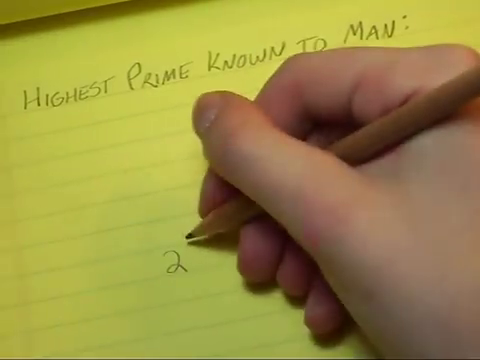 Highest Prime Known to Man:
2